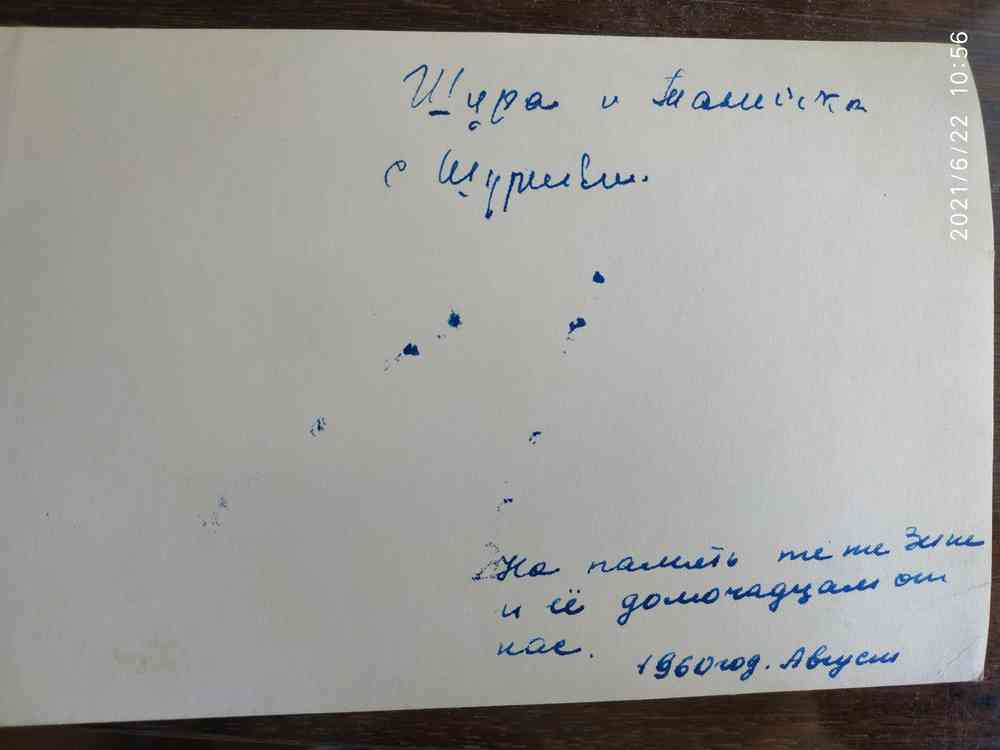 Шура и
с
На память тёте Зине
и её домочадцам от
нас.
1960 год. Август
2021/6/22 10:56